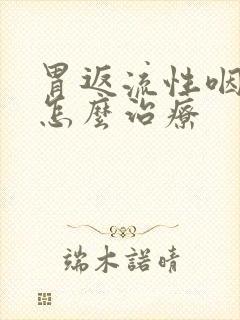 胃返流性咽
怎麼治療
端木諾晴